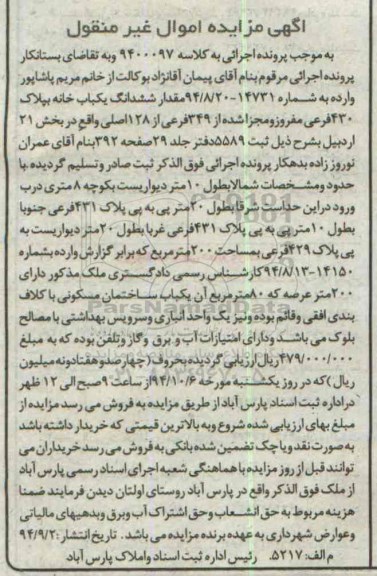 آگهی مزایده اموال غیر منقول
به موجب پرونده اجرائی به کلاسه ۹۴۰۰۰۹۷ وبه تقاضای بستانکار
پرونده اجرائی مرقوم بنام آقای پیمان آقانژاد بوکالت از خانم مریم پاشاپور
وارده به شماره ۱۴۷۳۱-۹۴/۸/۲۰مقدار ششدانگ یکباب خانه بپلاک
۴۳۰فرعی مفروزومجزا شده از ۳۴۹فرعی از ۱۲۸اصلی واقع در بخش ۲۱
اردبیل بشرح ذیل ثبت ۵۵۸۹دفتر جلد ۲۹صفحه ۳۹۲بنام آقای عمران
نوروز زاده بدهکار پرونده اجرائی فوق الذکر ثبت صادر وتسلیم گردیده .با
حدود ومشخصات شمالابطول ۱۰متر دیواریست بکوچه ۸متری درب
ورود دراین حداست شرقابطول ۲۰متر پی به پی پلاک ۴۳۱فرعی جنوبا
بطول ۱۰متر پی به پی پلاک ۴۳۱فرعی غربا بطول ۲۰متر دیواریست به
پی پلاک ۴۲۹فرعی بمساحت ۲۰۰مترمربع که برابر گزارش وارده بشماره
۱۴۱۵۰-۹۴/۸/۱۳کارشناس رسمی دادگستری ملک مذکور دارای
۲۰۰متر عرصه که ۸۰مترمربع آن یکباب ساختمان مسکونی با کلاف
بندی افقی وقائم بوده ونیز یک واحد انباری وسرویس بهداشتی با مصالح
بلوک می باشد ودارای امتیازات آب و برق وگاز وتلفن بوده که به مبلغ
۴۷۹/۰۰۰/۰۰۰ریال ارزیابی گردیده بحروف (چهارصدو هفتادونه میلیون
ریال )که در روز یکشنبه مورخه ۹۴/۱۰/۶از ساعت ۹صبح الی ۱۲ ظهر
دراداره ثبت اسناد پارس آباد از طریق مزایده به فروش می رسد مزایده از
مبلغ بهای ارزیابی شده شروع وبه بالاترین قیمتی که خریدار داشته باشد
به صورت نقد ویا چک تضمین شده بانکی به فروش می رسد خریداران می
توانند قبل از روز مزایده با هماهنگی شعبه اجرای اسناد رسمی پارس آباد
از ملک فوق الذکر واقع در پارس آباد روستای اولتان دیدن فرمایند ضمنا
هزینه مربوط به حق انشعاب وحق اشتراک آب وبرق وبدهیهای مالیاتی
وعوارض شهرداری به عهده برنده مزایده می باشد . تاریخ انتشار :۹۴/۹/۲
م الف: ۵۲۱۷. رئیس اداره ثبت اسناد واملاک پارس آباد